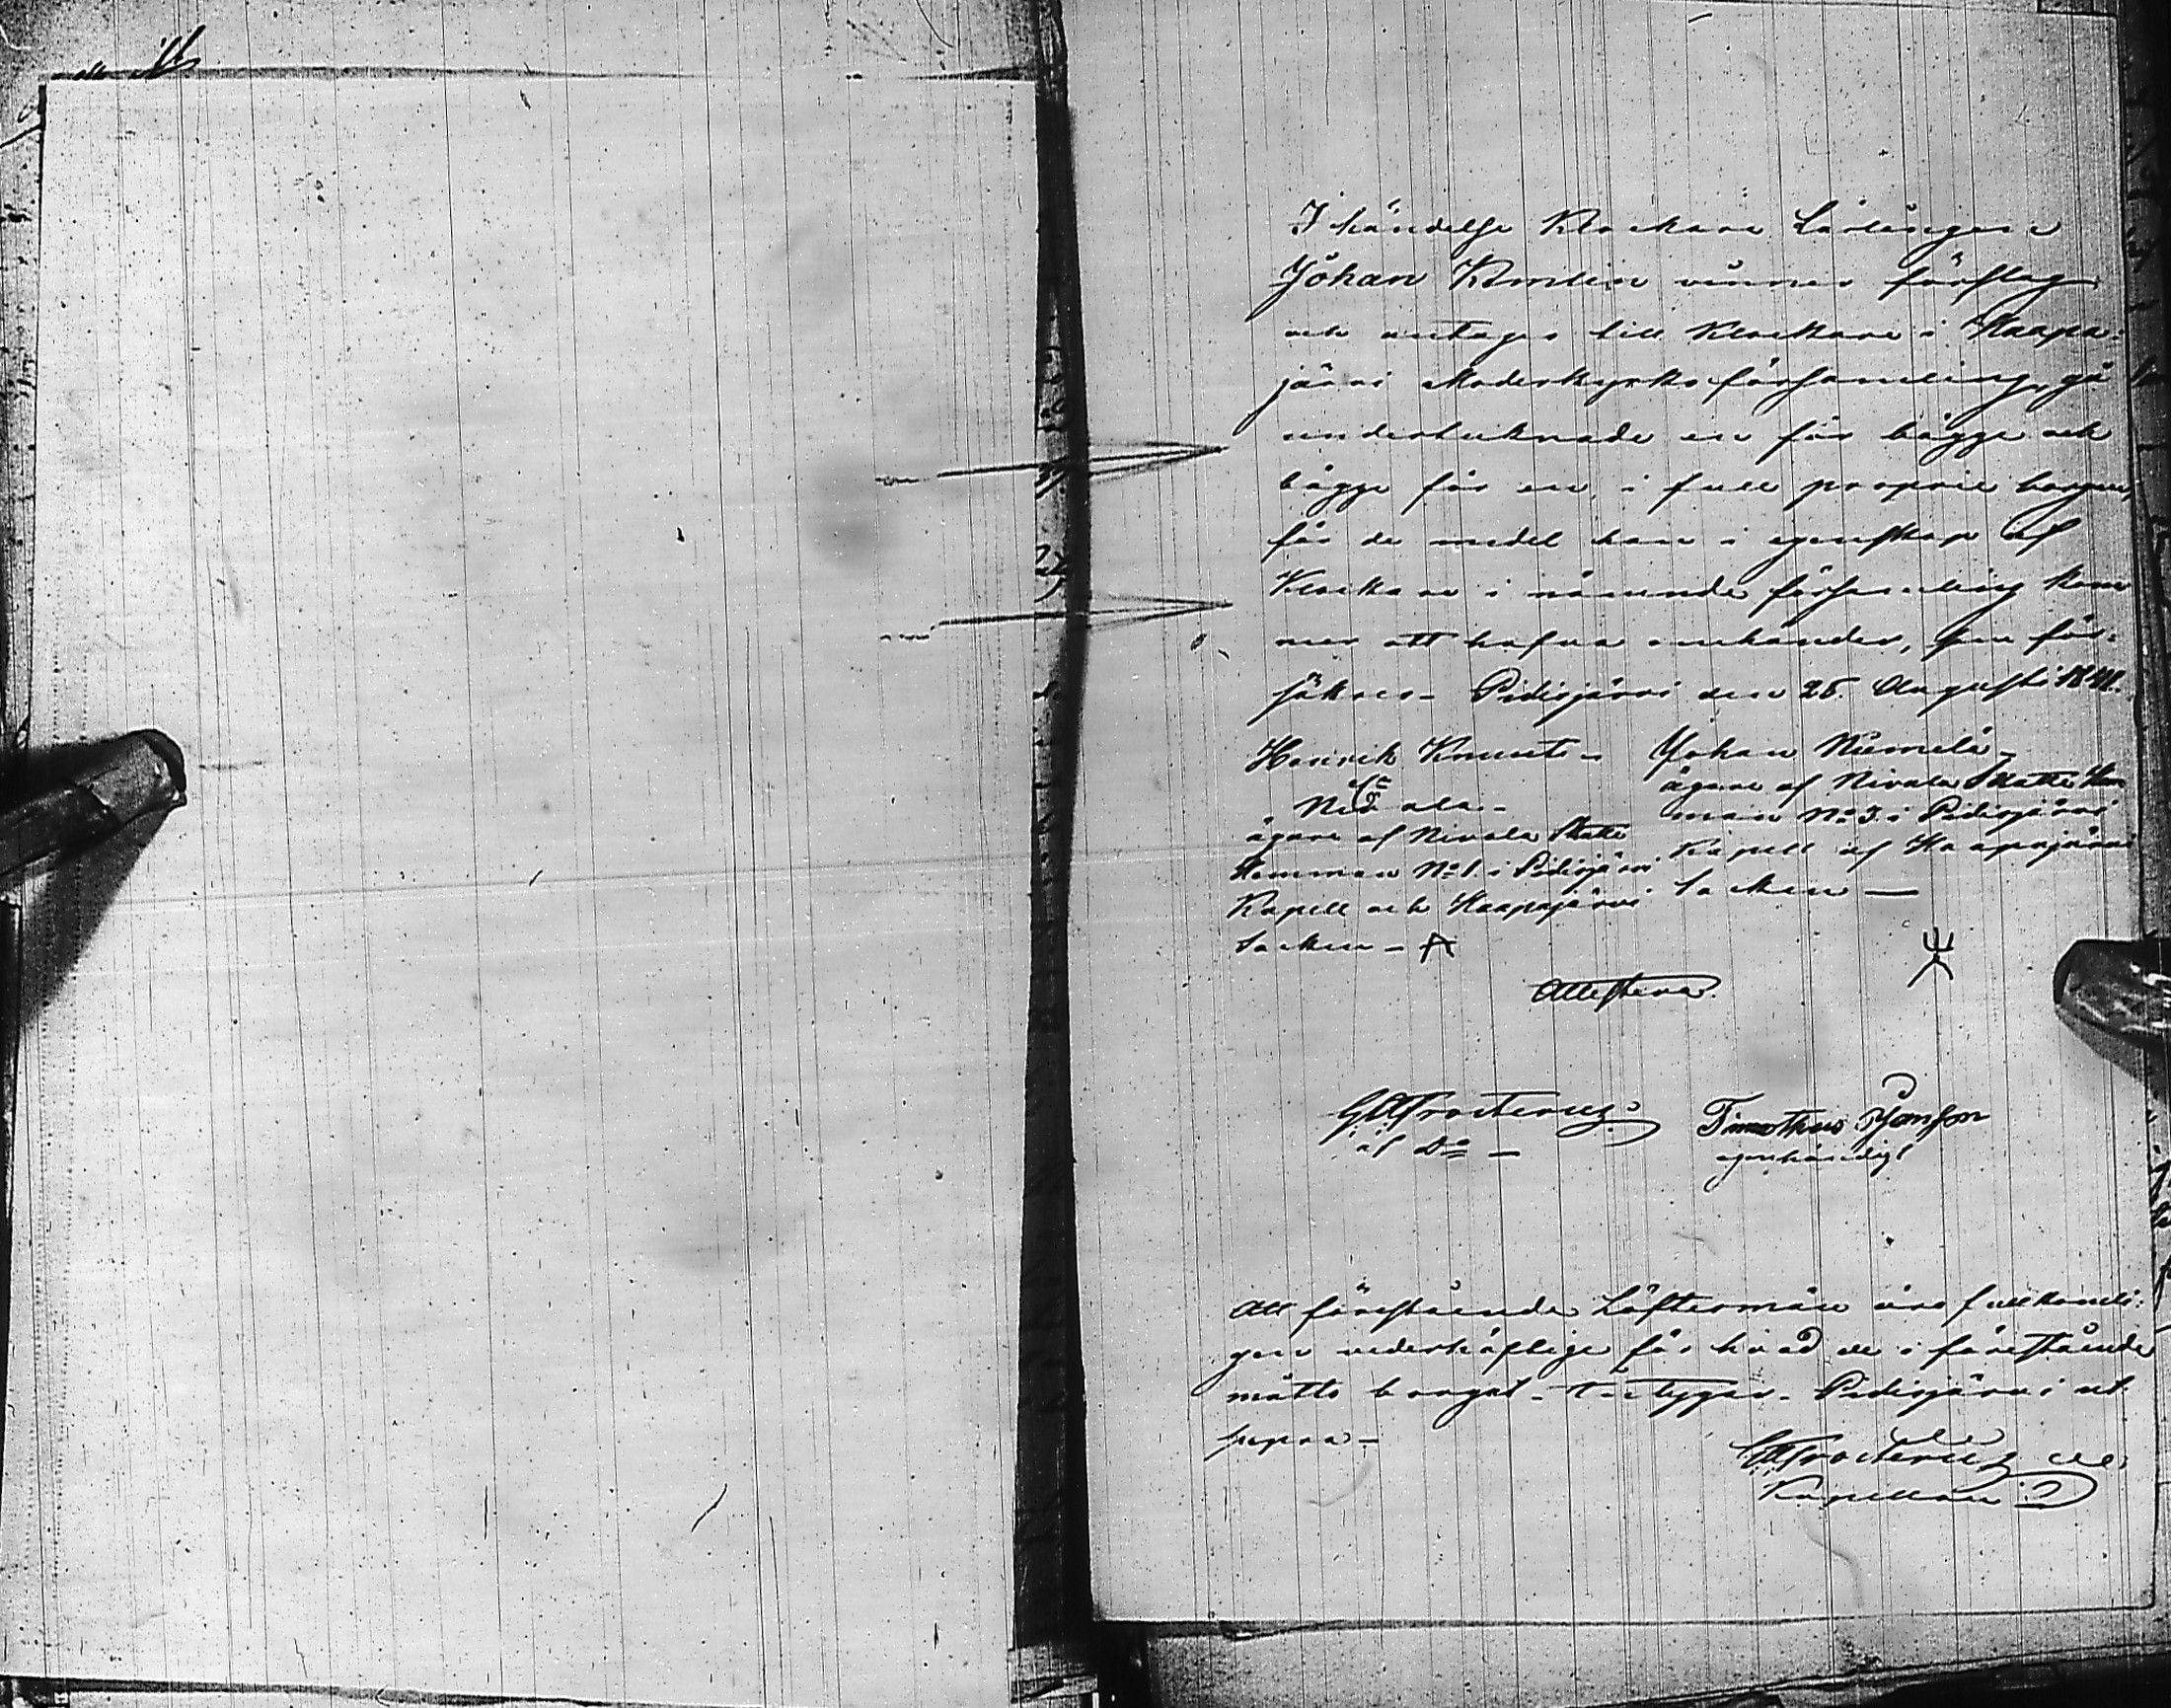 I händelse Klockare Lärlingen
Johan Kimlin vinner förslag
och antages till Klockare i Haapa-
järvi Moderkyrko församling, gå
undertecknade en för bägge och
bägge för en, i full proprie borgen,
för de medel han i egenskap af
Klockare i nämnde församling kom
mer att hafva omhänder, som för-
säkras. Pidisjärvi den 25. Augusti
Henrik Knuuti-
Nivala.
ägare af Nivala Skatte
Hemman No 1. i Pidisjärvi
Kapell och Haapajärvi
Socken -
Johan Niemelä
ägare af Nivala Skatte Hem
man No 3. i Pidisjärvi
Kapell af Haapajärvi
Socken —
Attestera.
Frosterus
Timotheus Jonson
egenhändigt
Att förestående Löftesmän äro fullkomli-
gen vederhäftige för hvad de i förestående
måtto borgat - betygar. Pidisjärvi ut
supra -
Frosterus
Kapellan